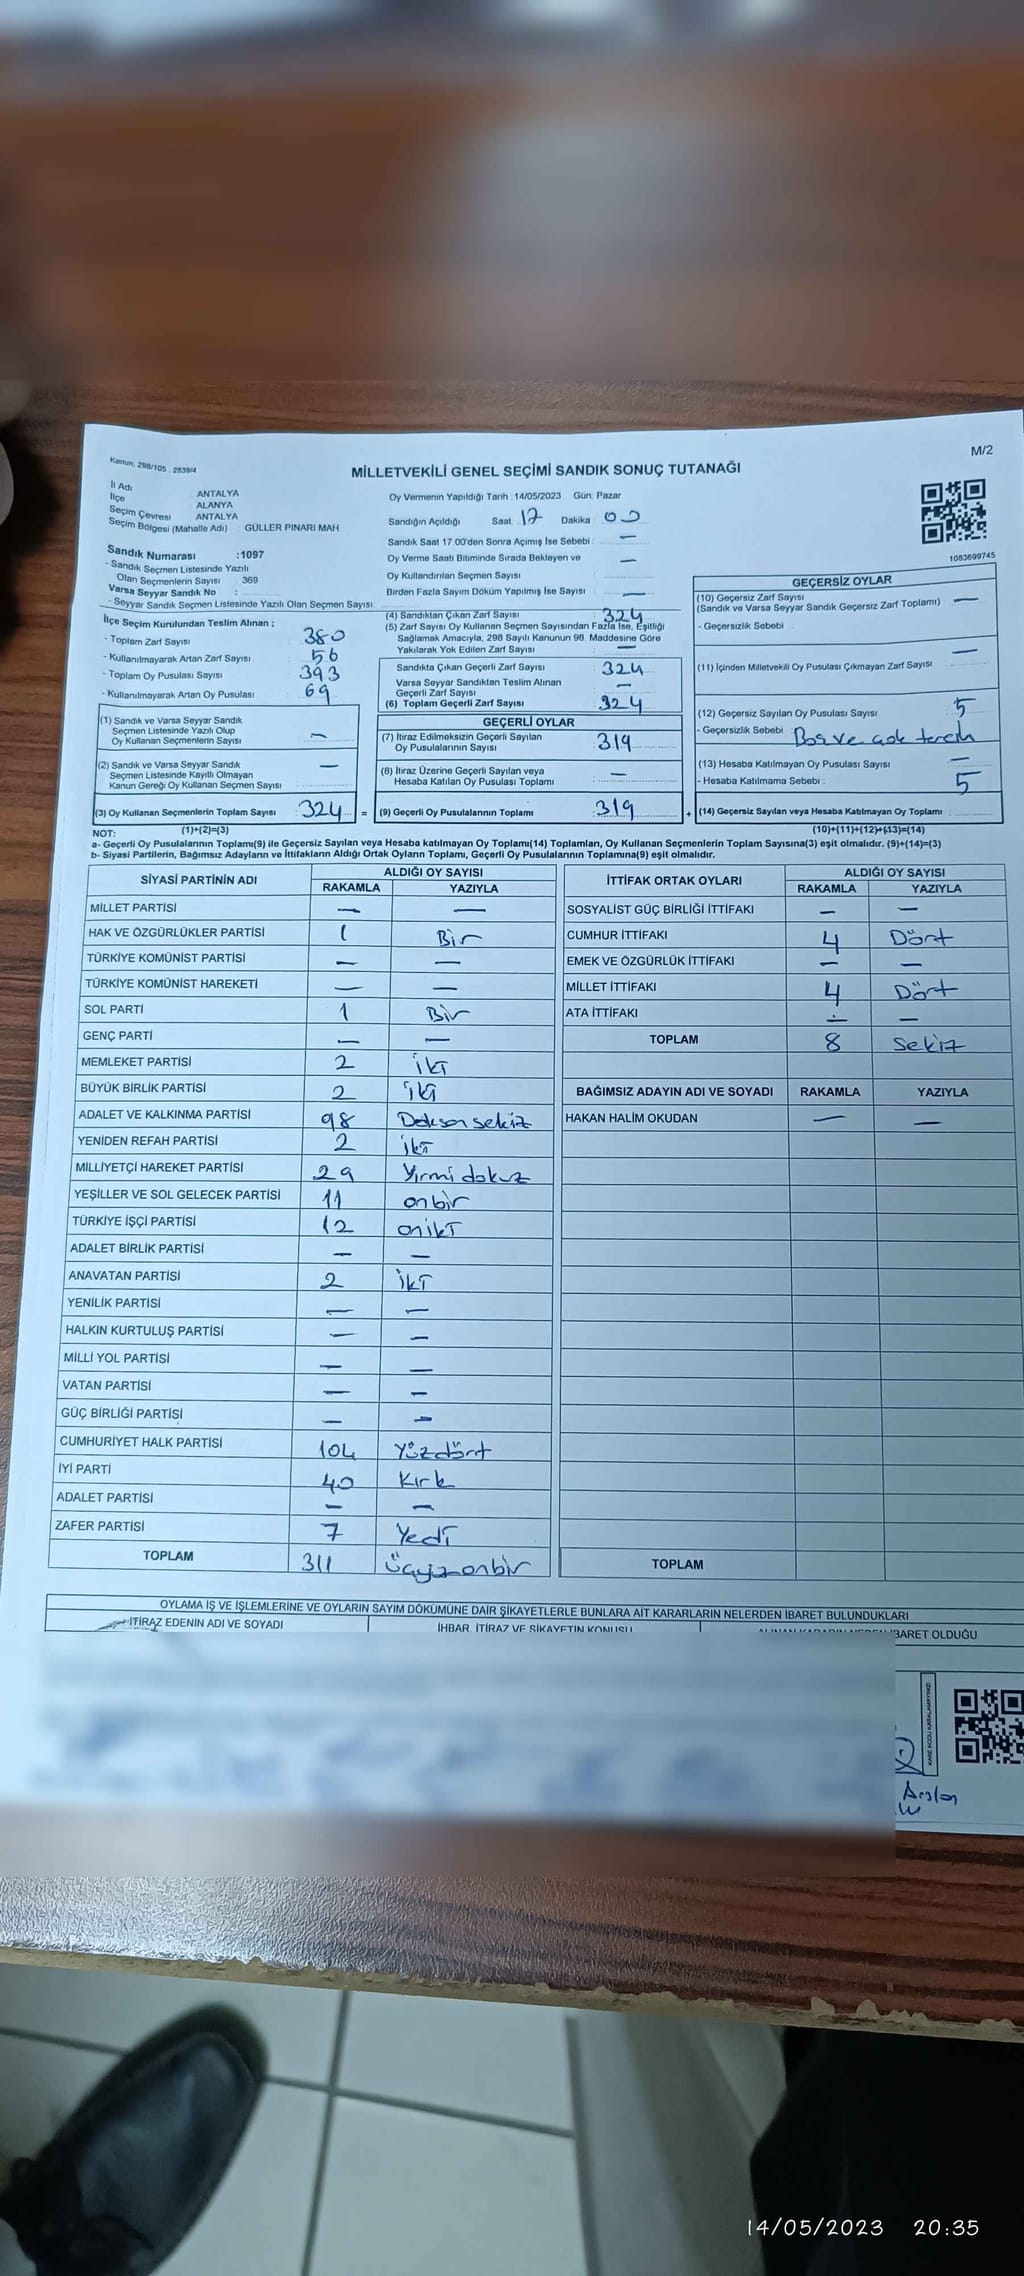 Kanun, 298/105 , 2839/4
M/2
MİLLETVEKİLİ GENEL SEÇİMİ SANDIK SONUÇ TUTANAĞI
İl Adı ANTALYA
İlçe ALANYA
Seçim Çevresi ANTALYA
Seçim Bölgesi (Mahalle Adı) GÜLLER PINARI MAH.
Sandık Numarası :1097
- Sandık Seçmen Listesinde Yazılı
Olan Seçmenlerin Sayısı : 369
Varsa Seyyar Sandık No :
- Seyyar Sandık Seçmen Listesinde Yazılı Olan Seçmen Sayısı
Oy Vermenin Yapıldığı Tarih :14/05/2023 Gün: Pazar
Sandığın Açıldığı Saat. 17 Dakika 00
Sandık Saat 17 00'den Sonra Açımış İse Sebebi : —
Oy Verme Saati Bitiminde Sırada Bekleyen ve —
Oy Kullandırılan Seçmen Sayısı
Birden Fazla Sayım Döküm Yapılmış İse Sayısı —
1083699745
İlçe Seçim Kurulundan Teslim Alınan ;
- Toplam Zarf Sayısı : 380
- Kullanılmayarak Artan Zarf Sayısı : 56
- Toplam Oy Pusulası Sayısı : 393
- Kullanılmayarak Artan Oy Pusulası : 69
(1) Sandık ve Varsa Seyyar Sandık
Seçmen Listesinde Yazılı Olup
Oy Kullanan Seçmenlerin Sayısı : —
(2) Sandık ve Varsa Seyyar Sandık —
Seçmen Listesinde Kayıtlı Olmayan
Kanun Gereği Oy Kullanan Seçmen Sayısı
(3) Oy Kullanan Seçmenlerin Toplam Sayısı : 324 =
(1)+(2)=(3)
(4) Sandıktan Çıkan Zarf Sayısı : 324
(5) Zarf Sayısı Oy Kullanan Seçmen Sayısından Fazla İse, Eşitliği
Sağlamak Amacıyla, 298 Sayılı Kanunun 98. Maddesine Göre
Yakılarak Yok Edilen Zarf Sayısı —
Sandıkta Çıkan Geçerli Zarf Sayısı : 324
Varsa Seyyar Sandıktan Teslim Alınan
Geçerli Zarf Sayısı —
(6) Toplam Geçerli Zarf Sayısı : 324
GEÇERLİ OYLAR
(7) İtiraz Edilmeksizin Geçerli Sayılan
Oy Pusulalarının Sayısı : 319
(8) İtiraz Üzerine Geçerli Sayılan veya
Hesaba Katılan Oy Pusulası Toplamı : —
(9) Geçerli Oy Pusulalarının Toplamı : 319 +
GEÇERSİZ OYLAR
(10) Geçersiz Zarf Sayısı —
(Sandık ve Varsa Seyyar Sandık Geçersiz Zarf Toplamı)
- Geçersizlik Sebebi :
—
(11) İçinden Milletvekili Oy Pusulası Çıkmayan Zarf Sayısı
(12) Geçersiz Sayılan Oy Pusulası Sayısı 5
- Geçersizlik Sebebi : Boş ve çok tercih
(13) Hesaba Katılmayan Oy Pusulası Sayısı —
- Hesaba Katılmama Sebebi : 5
(14) Geçersiz Sayılan veya Hesaba Katılmayan Oy Toplamı :
(10)+(11)+(12)+(13)=(14)
NOT:
a- Geçerli Oy Pusulalarının Toplamı(9) ile Geçersiz Sayılan veya Hesaba katılmayan Oy Toplamı(14) Toplamları, Oy Kullanan Seçmenlerin Toplam Sayısına(3) eşit olmalıdır. (9)+(14)=(3)
b- Siyasi Partilerin, Bağımsız Adayların ve İttifakların Aldığı Ortak Oyların Toplamı, Geçerli Oy Pusulalarının Toplamına(9) eşit olmalıdır.
SİYASİ PARTİNİN ADI ALDIĞI OY SAYISI
RAKAMLA YAZIYLA
MİLLET PARTİSİ — —
HAK VE ÖZGÜRLÜKLER PARTİSİ 1 Bir
TÜRKİYE KOMÜNİST PARTİSİ — —
TÜRKİYE KOMÜNİST HAREKETİ — —
SOL PARTİ 1 Bir
GENÇ PARTİ — —
MEMLEKET PARTİSİ 2 iki
BÜYÜK BİRLİK PARTİSİ 2 iki
ADALET VE KALKINMA PARTİSİ 98 Doksan sekiz
YENİDEN REFAH PARTİSİ 2 iki
MİLLİYETÇİ HAREKET PARTİSİ 29 Yirmi dokuz
YEŞİLLER VE SOL GELECEK PARTİSİ 11 onbir
TÜRKİYE İŞÇİ PARTİSİ 12 oniki
ADALET BİRLİK PARTİSİ — —
ANAVATAN PARTİSİ 2 iki
YENİLİK PARTİSİ — —
HALKIN KURTULUŞ PARTİSİ — —
MİLLİ YOL PARTİSİ — —
VATAN PARTİSİ — —
GÜÇ BİRLİĞİ PARTİSİ — —
CUMHURİYET HALK PARTİSİ 104 Yüzdört
İYİ PARTİ 40 Kırk
ADALET PARTİSİ — —
ZAFER PARTİSİ 7 Yedi
TOPLAM 311 Üçyüzonbir
İTTİFAK ORTAK OYLARI ALDIĞI OY SAYISI
RAKAMLA YAZIYLA
SOSYALİST GÜÇ BİRLİĞİ İTTİFAKI — —
CUMHUR İTTİFAKI 4 Dört
EMEK VE ÖZGÜRLÜK İTTİFAKI — —
MİLLET İTTİFAKI 4 Dört
ATA İTTİFAKI — —
TOPLAM 8 Sekiz
BAĞIMSIZ ADAYIN ADI VE SOYADI RAKAMLA YAZIYLA
HAKAN HALİM OKUDAN — —
TOPLAM
OYLAMA İŞ VE İŞLEMLERİNE VE OYLARIN SAYIM DÖKÜMÜNE DAİR ŞİKAYETLERLE BUNLARA AİT KARARLARIN NELERDEN İBARET BULUNDUKLARI
İTİRAZ EDENİN ADI VE SOYADI İHBAR, İTİRAZ VE ŞİKAYETİN KONUSU İBARET OLDUĞU
Arslan
14/05/2023 20:35